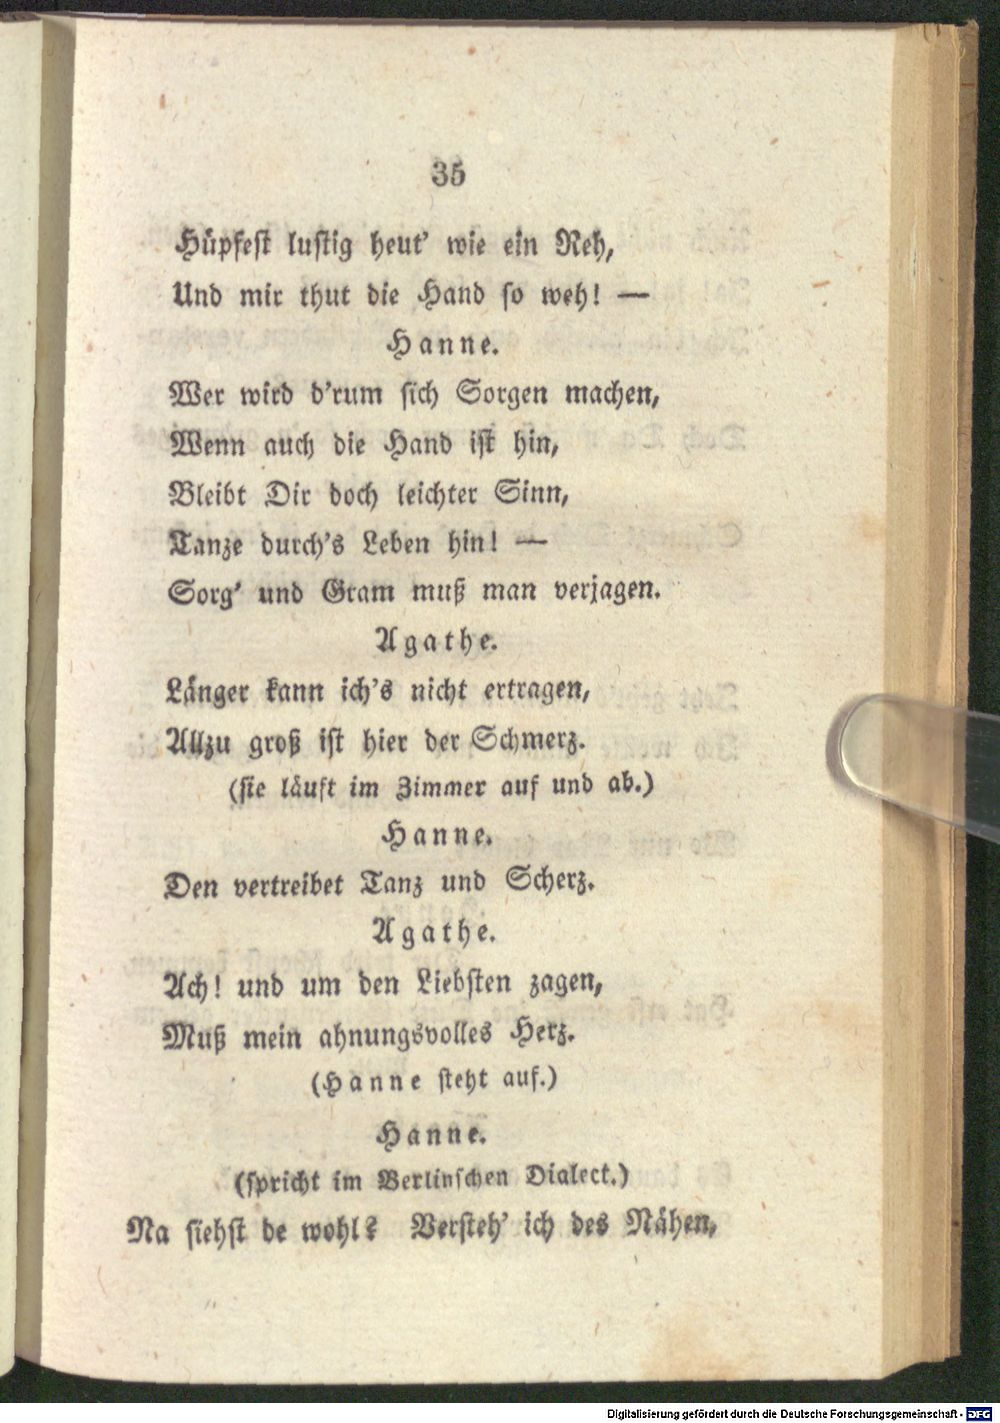 35
Hüpfest lustig heut' wie ein Reh,
Und mir thut die Hand so weh! —
Hanne.
Wer wird d'rum sich Sorgen machen,
Wenn auch die Hand ist hin,
Bleibt Dir doch leichter Sinn,
Tanze durch's Leben hin! —
Sorg' und Gram muß man verjagen.
Agathe.
Länger kann ich's nicht ertragen,
Allzu groß ist hier der Schmerz.
(sie läuft im Zimmer auf und ab.)
Hanne.
Den vertreibet Tanz und Scherz.
Agathe.
Ach! und um den Liebsten zagen,
Muß mein ahnungsvolles Herz.
(Hanne steht auf.)
Hanne.
(spricht im Berlinschen Dialect.)
Na siehst de wohl? Versteh' ich des Nähen,
Digitalisierung gefördert durch die Deutsche Forschungsgemeinschaft - DFG